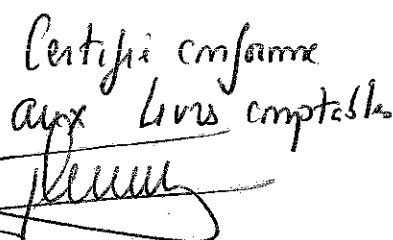 Certifié conforme
aux livres comptables